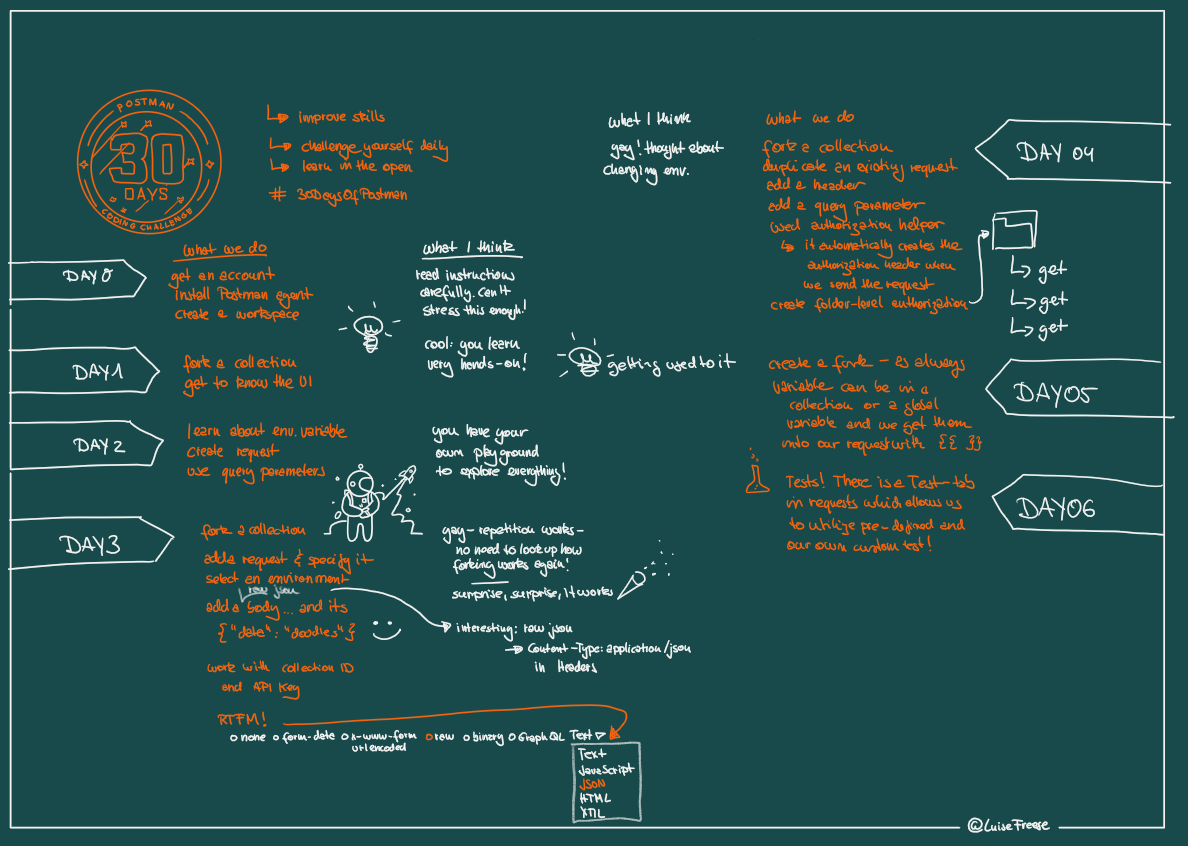 POSTMAN
30
DAYS
CODING CHALLENGE
improve skills
challenge yourself daily
learn in the open
# 30DaysOfPostman
what we do
what I think
DAY 0
get an account
install Postman agent
create a workspace
read instructions
carefully. Can't
stress this enough!
cool: you learn
very hands-on!
DAY 1
fork a collection
get to know the UI
getting used to it
DAY 2
learn about env. variable
create request
use query parameters
you have your
own playground
to explore everything!
DAY 3
fork a collection
add a request & specify it
select an environment
raw json
add a body... and its
{"data": "doodles"}
work with collection ID
and API Key
yay - repetition works -
no need to look up how
forking works again!
surprise, surprise, it works
interesting: raw json
Content-Type: application/json
in Headers
RTFM!
none form-data x-www-form
urlencoded
raw binary GraphQL Text
Text
JavaScript
JSON
HTML
XML
what I think
yay! thought about
changing env.
what we do
DAY 04
fork a collection
duplicate an existing request
add a header
add a query parameter
used authorization helper
it automatically creates the
authorization header when
we send the request
create folder-level authorization
get
get
get
DAY05
create a fork - as always
variable can be in a
collection or a global
variable and we get them
into our request with {{ }}
DAY06
Tests! There is a Test-tab
in requests which allows us
to utilize pre-defined and
our own custom test!
@LuiseFreese